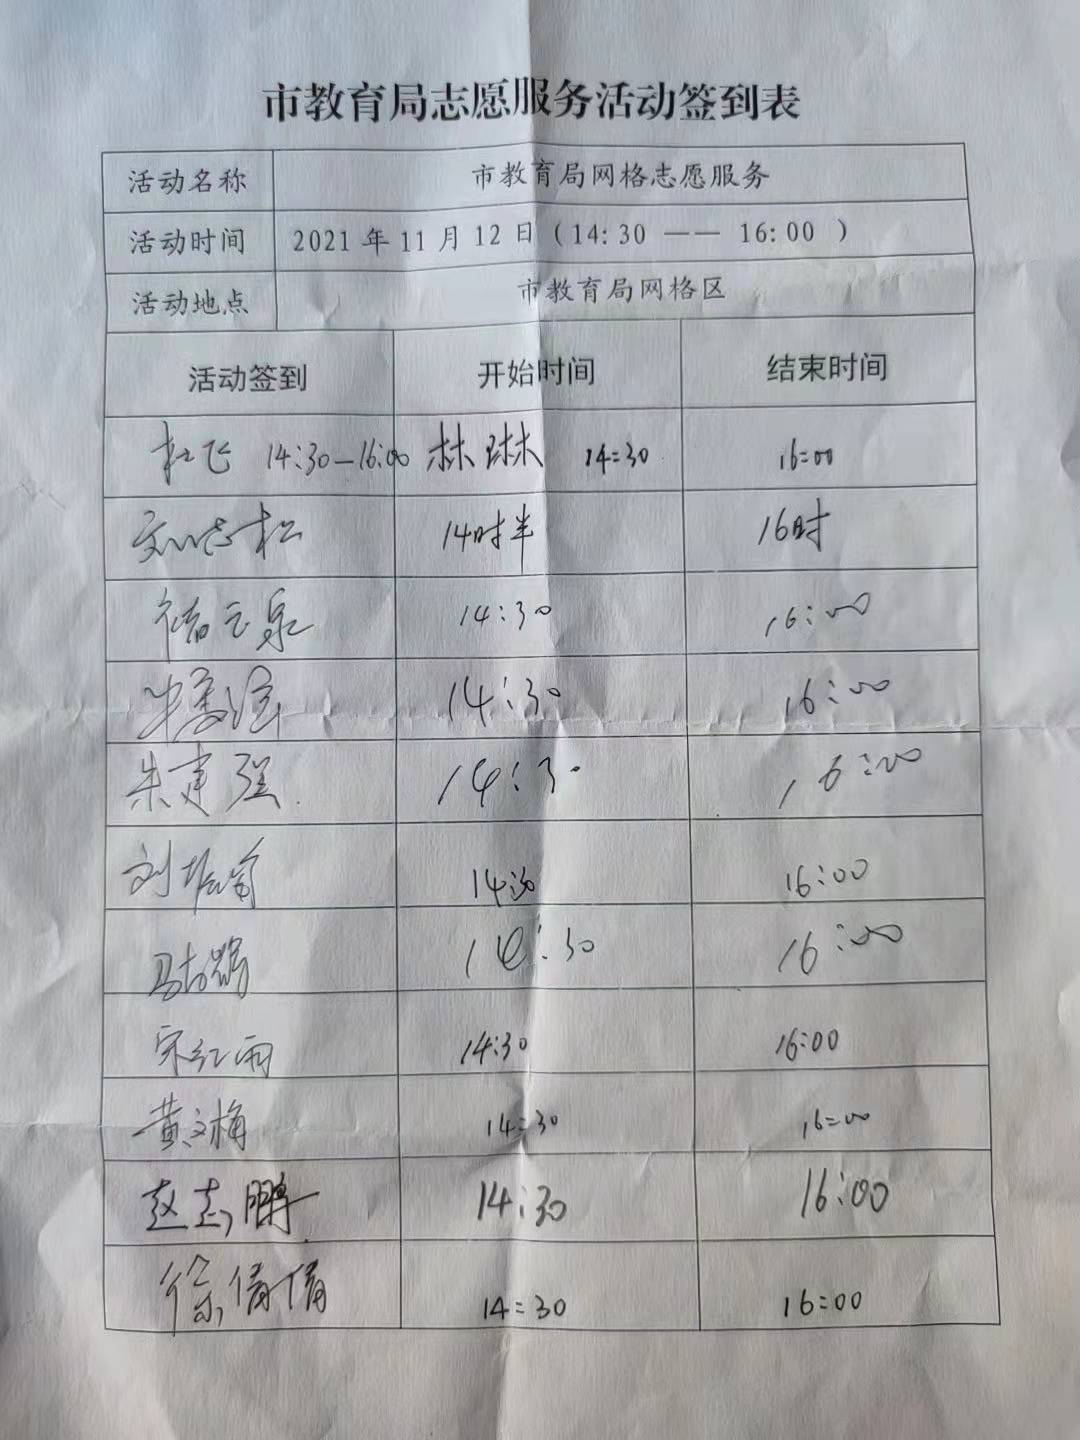 市教育局志愿服务活动签到表
活动名称 市教育局网格志愿服务
活动时间 2021年11月12日（14:30 —— 16:00 ）
活动地点 市教育局网格区
活动签到 开始时间 结束时间
杜飞 14:30—16:00 林琳 14:30 16:00
刘志松 14时半 16时
褚玉泉 14:30 16:00
14:30 16:00
朱建强 14:30 16:00
刘 14:30 16:00
马 14:30 16:00
宋红雨 14:30 16:00
黄文梅 14:30 16:00
赵志鹏 14:30 16:00
徐倩倩 14:30 16:00